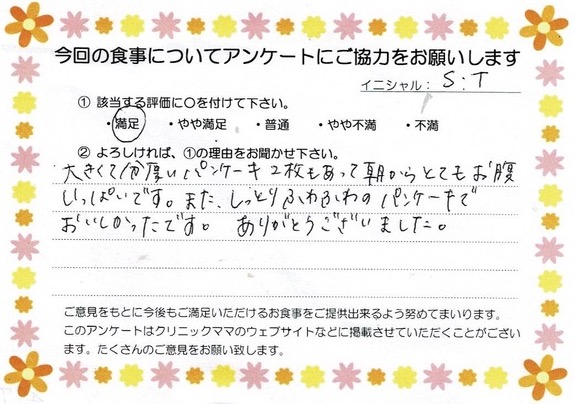 今回の食事についてアンケートにご協力をお願いします
イニシャル： S:T
① 該当する評価に〇を付けて下さい。
・満足 ・やや満足 ・普通 ・やや不満 ・不満
② よろしければ、①の理由をお聞かせ下さい。
大きくて分厚いパンケーキ2枚もあって朝からとてもお腹
いっぱいです。また、しっとりふわふわのパンケーキで
おいしかったです。 ありがとうございました。
ご意見をもとに今後もご満足いただけるお食事をご提供出来るよう努めてまいります。
このアンケートはクリニックママのウェブサイトなどに掲載させていただくことがござい
ます。たくさんのご意見をお願い致します。